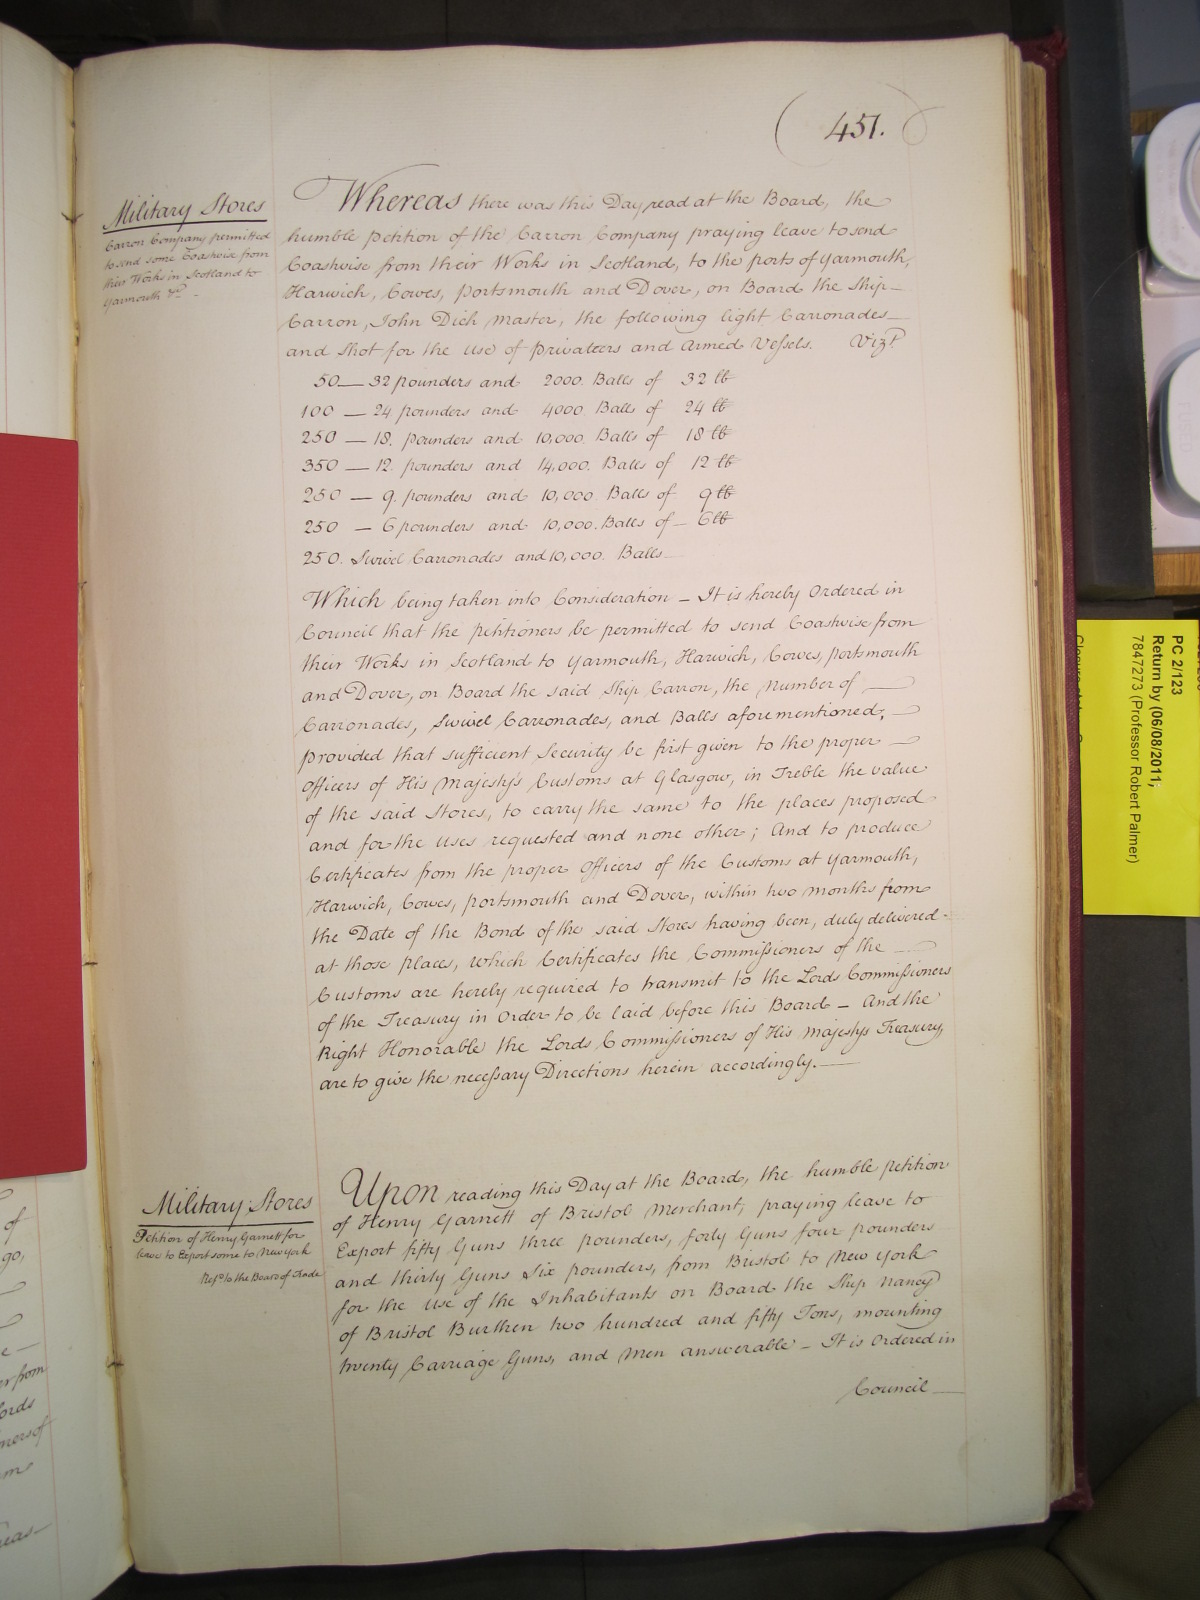 (451.)
Military Stores
Carron Company permitted
to send some Coastwise from
their Works in Scotland to
Yarmouth &c. -
Whereas there was this Day read at the Board, the
humble Petition of the Carron Company praying leave to send
Coastwise from their Works in Scotland, to the ports of Yarmouth,
Harwich, Cowes, Portsmouth and Dover, on Board the Ship
Carron, John Dick Master, the following light Carronades
and Shot for the use of Privateers and Armed Vessels. Vizt.
50 — 32 pounders and 2000. Balls of 32 lb
100 — 24 pounders and 4000 Balls of 24 lb
250 — 18. pounders and 10,000. Balls of 18 lb
350 — 12. pounders and 14,000. Balls of 12 lb
250 — 9. pounders and 10,000 Balls of 9 lb
250 — 6 pounders and 10,000. Balls of — 6 lb
250. Swivel Carronades and 10,000. Balls
Which being taken into Consideration – It is hereby Ordered in
Council that the Petitioners be permitted to send Coastwise from
their Works in Scotland to Yarmouth, Harwich, Cowes, Portsmouth
and Dover, on Board the said Ship Carron, the Number of —
Carronades, Swivel Carronades, and Balls aforementioned, —
provided that sufficient Security be first given to the proper —
Officers of His Majesty's Customs at Glasgow, in Treble the value
of the said Stores, to carry the same to the places proposed
and for the uses requested and none other; And to produce
Certificates from the proper Officers of the Customs at Yarmouth,
Harwich, Cowes, Portsmouth and Dover, within two months from
the Date of the Bond of the said Stores having been, duly delivered
at those places, which Certificates the Commissioners of the —
Customs are hereby required to transmit to the Lords Commissioners
of the Treasury in Order to be laid before this Board – And the
Right Honorable the Lords Commissioners of His Majestys Treasury,
are to give the necessary Directions herein accordingly. —
Military Stores
Petition of Henry Garnett for
leave to Export some to New York
Refd. to the Board of Trade
Upon reading this Day at the Board, the humble petition
of Henry Garnett of Bristol Merchant, praying leave to
Export fifty Guns three pounders, forty Guns four pounders
and thirty Guns Six pounders, from Bristol to New York
for the use of the Inhabitants on Board the Ship Nancy
of Bristol Burthen two hundred and fifty Tons, mounting
twenty Carriage Guns, and Men answerable – It is Ordered in
Council —
of
go,
e —
er from
ords
ners of
eas—
PC 2/123
Return by (06/08/2011;
7847273 (Professor Robert Palmer)
FUSED